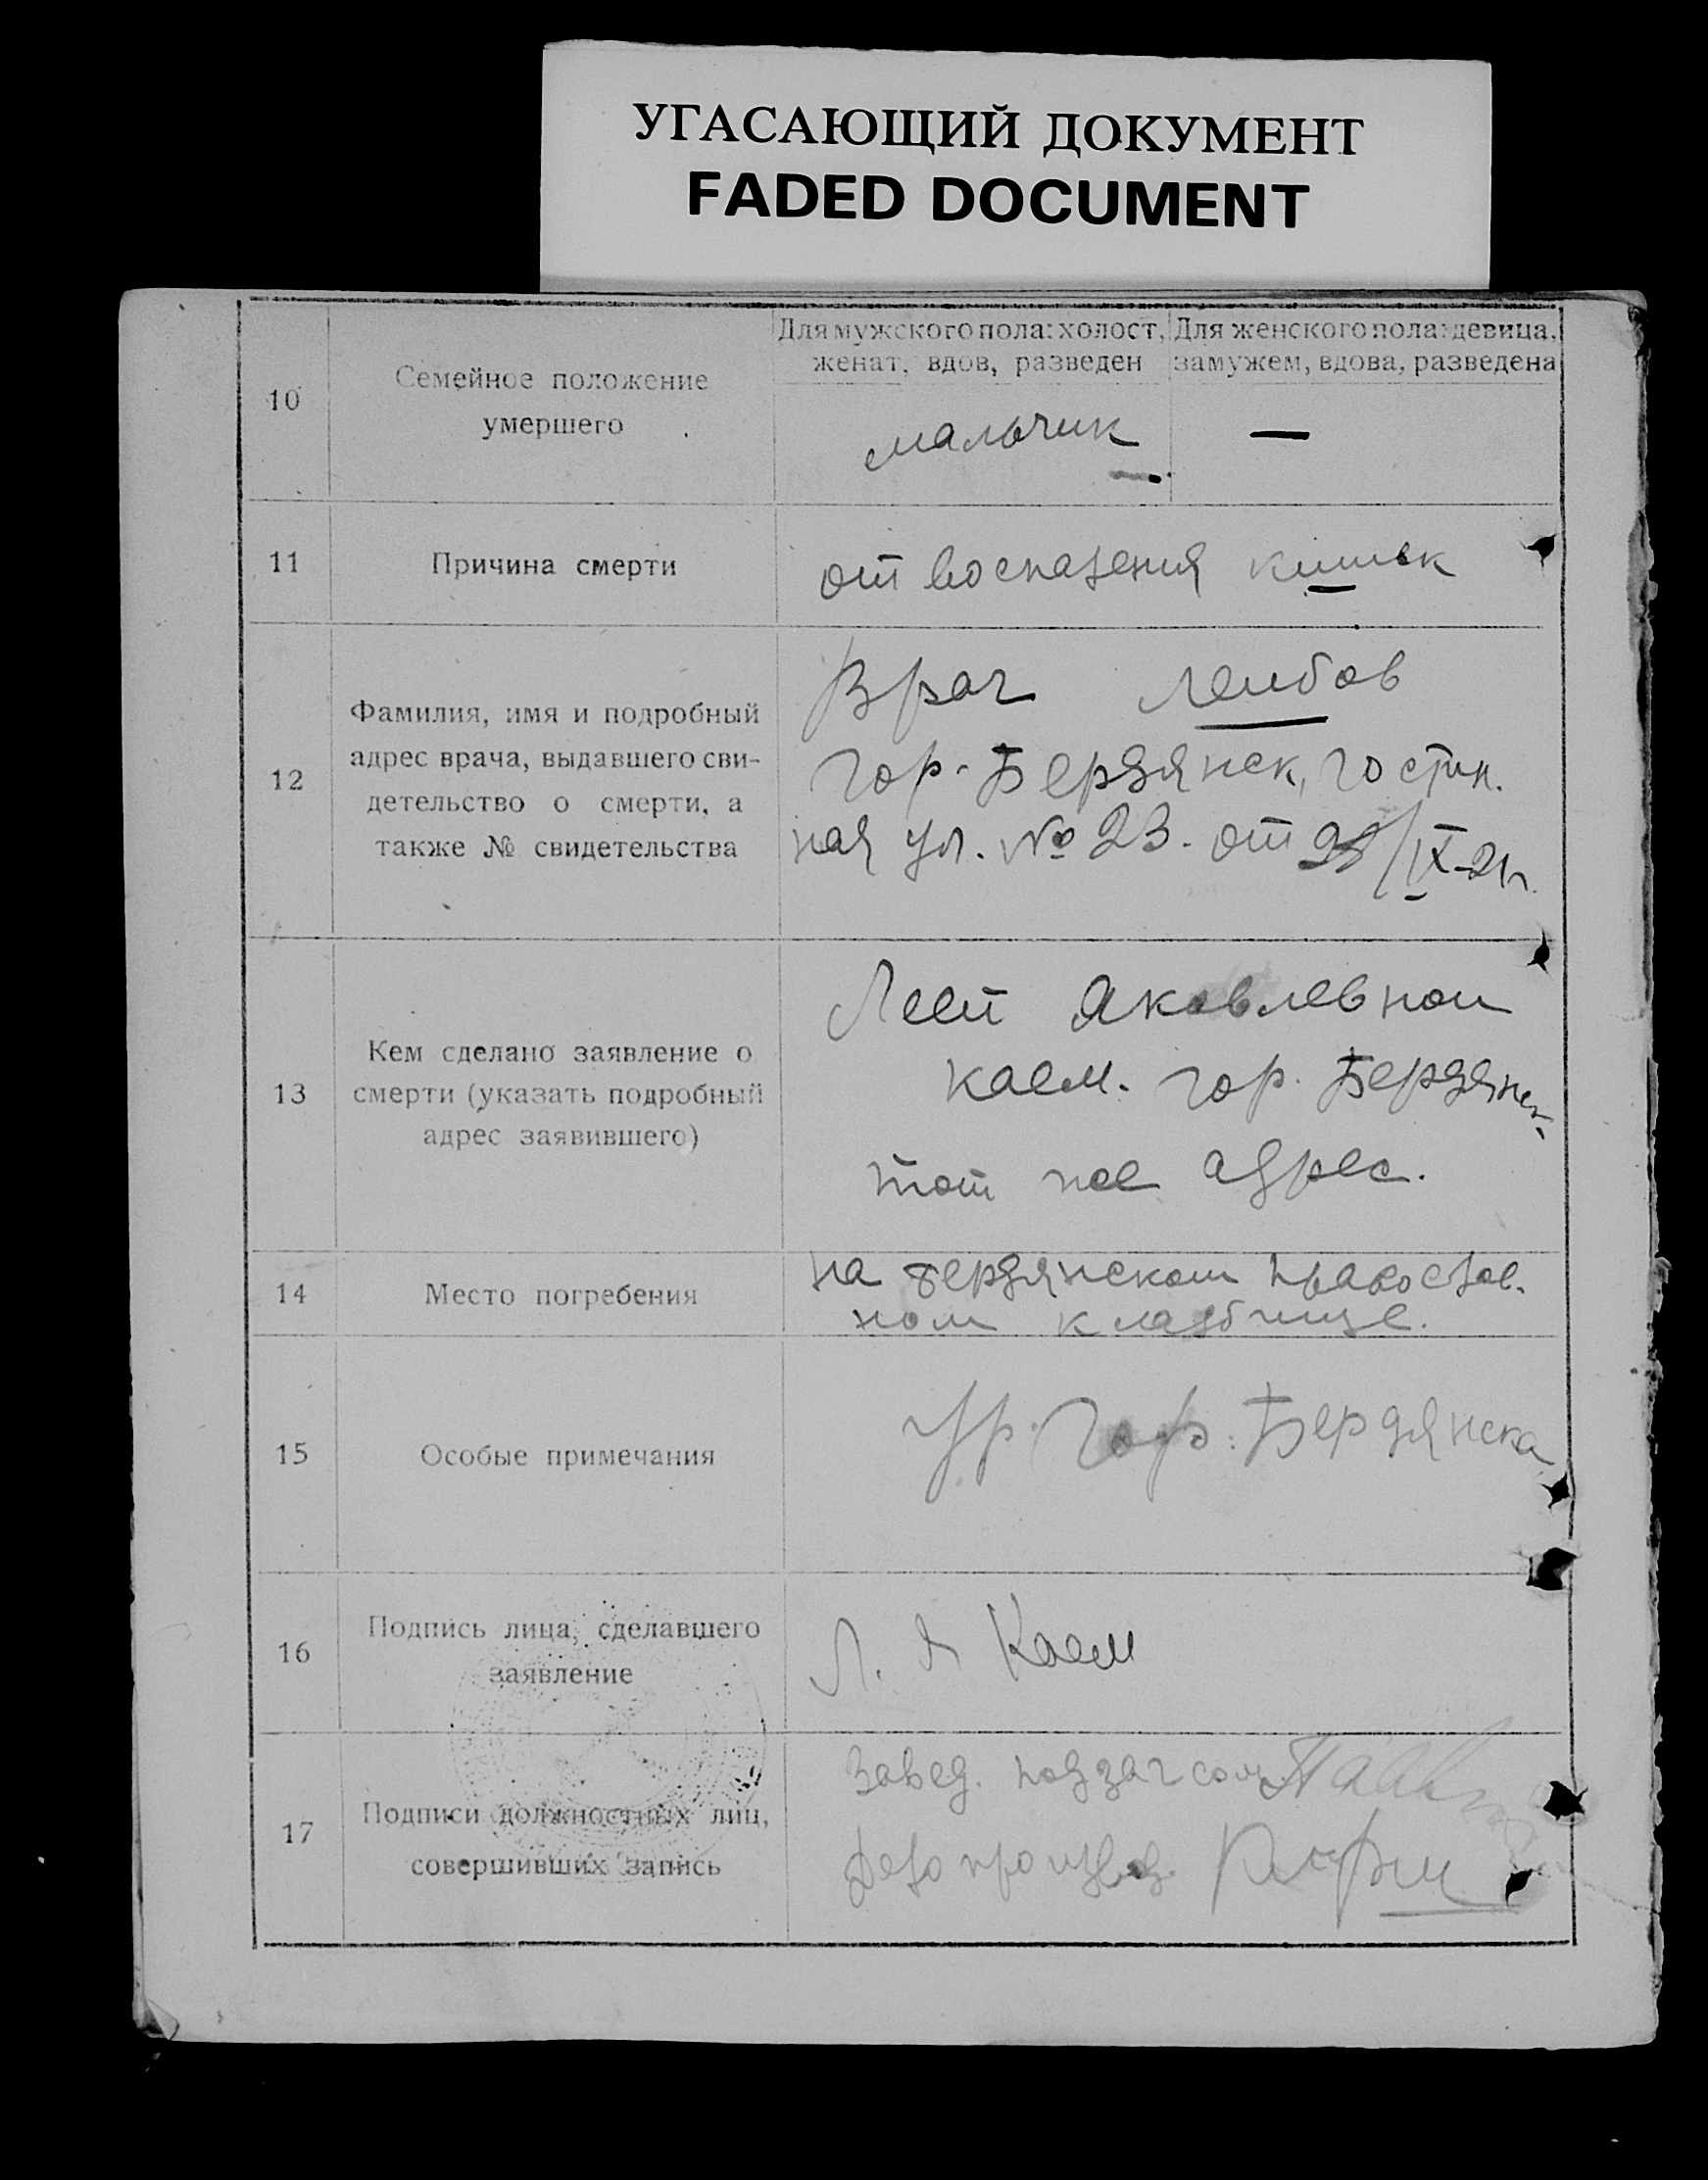 УГАСАЮЩИЙ ДОКУМЕНТ
FADED DOCUMENT
10
Семейное положение
умершего
Для мужского пола: холост,
женат, вдов, разведен
Для женского пола: девица,
замужем, вдова, разведена
мальчик
—
11
Причина смерти
от воспаления кишек
12
Фамилия, имя и подробный
адрес врача, выдавшего сви-
детельство о смерти, а
также № свидетельства
Врач Лейбов
гор. Бердянск, гостин.
ная ул. № 23. от /IX-21г.
13
Кем сделано заявление о
смерти (указать подробный
адрес заявившего)
Яковлевной
Каем. гор. Бердянск.
тот же адрес.
14
Место погребения
на бердянском православ.
ном кладбище.
15
Особые примечания
гор. Бердянска
16
Подпись лица, сделавшего
заявление
Л. Я Каем
17
Подписи должностных лиц,
совершивших запись
Завед. подзагсом
Делопроизвод.